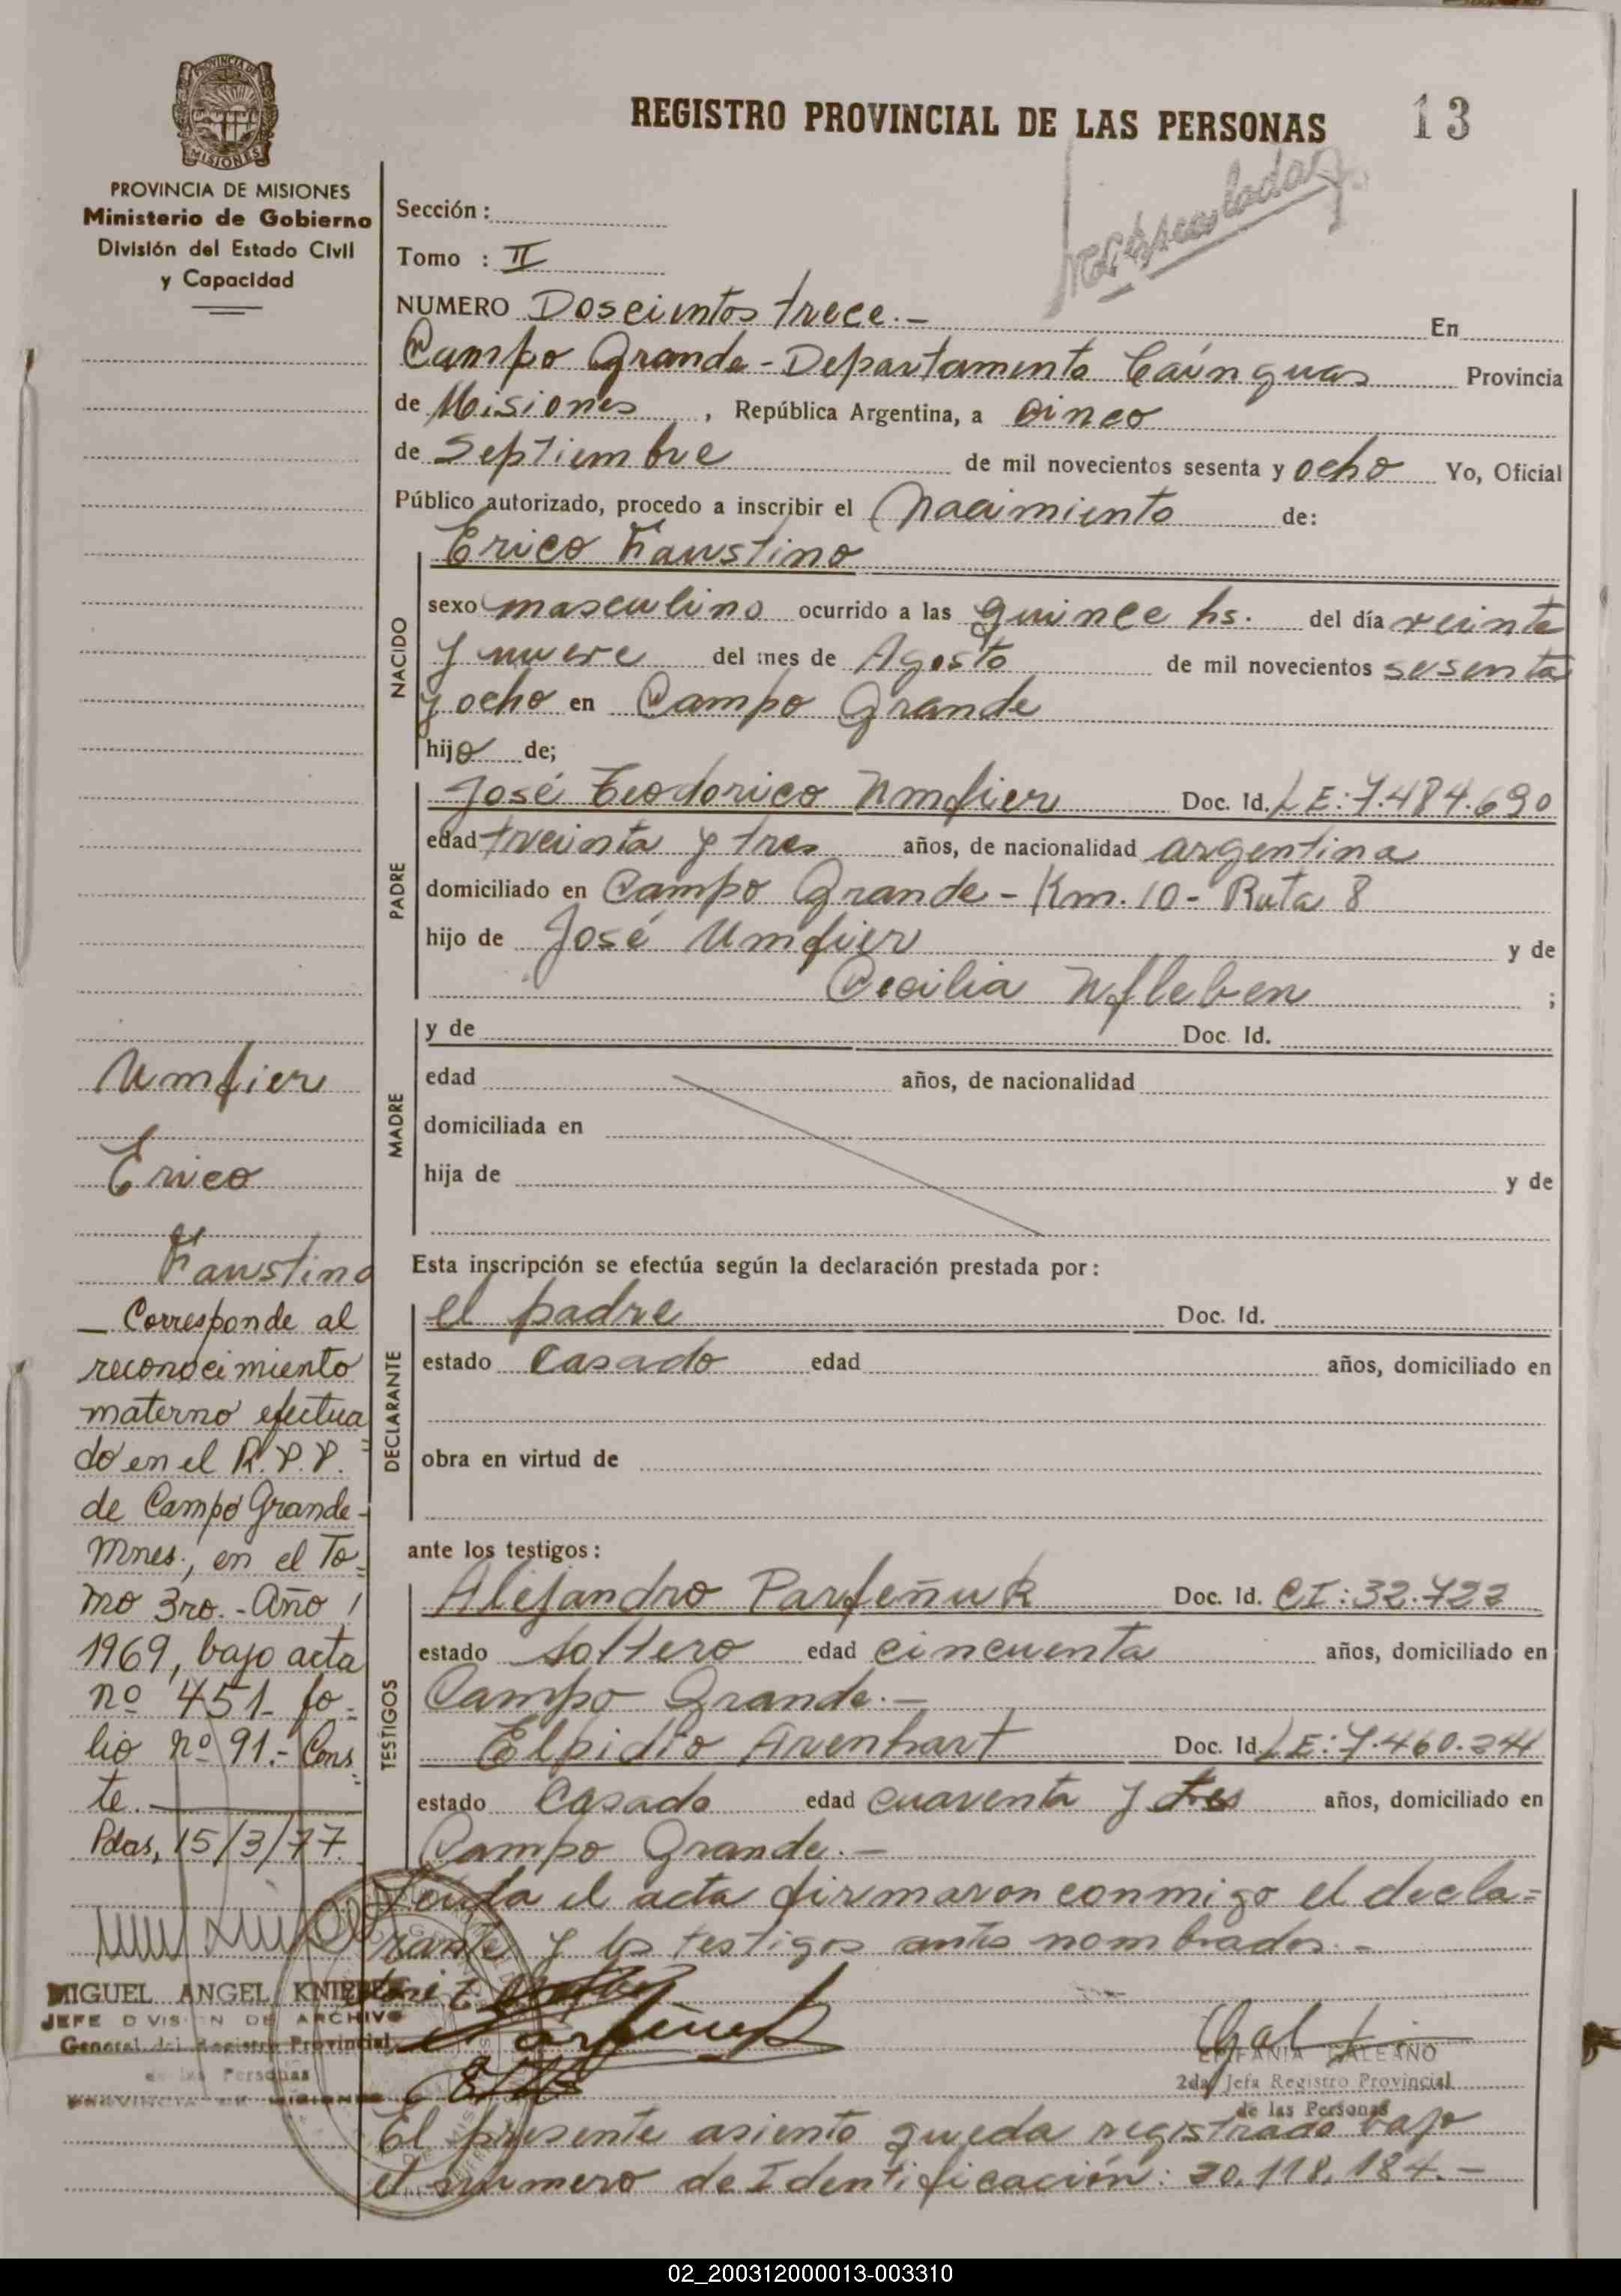 REGISTRO PROVINCIAL DE LAS PERSONAS
13
PROVINCIA DE MISIONES
Ministerio de Gobierno
División del Estado Civil
y Capacidad
Sección :
Tomo : II
NUMERO Doscientos trece.- En
Campo Grande - Departamento Caínguas Provincia
de Misiones , República Argentina, a cinco
de Septiembre de mil novecientos sesenta y ocho Yo, Oficial
Público autorizado, procedo a inscribir el Nacimiento de:
Erico Faustino
NACIDO
sexo masculino ocurrido a las quince hs. del día veinte
y nueve del mes de Agosto de mil novecientos sesenta
y ocho en Campo Grande
hijo de;
PADRE
José Teodorico Umfier Doc. Id. LE: 7.484.690
edad treinta y tres años, de nacionalidad argentina
domiciliado en Campo Grande - Km. 10 - Ruta 8
hijo de José Umfier y de
Cecilia ;
MADRE
y de Doc. Id.
edad años, de nacionalidad
domiciliada en
hija de y de
Esta inscripción se efectúa según la declaración prestada por :
DECLARANTE
el padre Doc. Id.
estado casado edad años, domiciliado en
obra en virtud de
ante los testigos :
TESTIGOS
Alejandro Parfeñuk Doc. Id. CI: 32.722
estado soltero edad cincuenta años, domiciliado en
Campo Grande.-
Elpidio Arenhart Doc. Id. LE: 7.460.241
estado casado edad cuarenta y tres años, domiciliado en
Campo Grande.-
Leída el acta firmaron conmigo el decla=
rante y los testigos antes nombrados.-
EPIFANIA GALEANO
2da Jefa Registro Provincial
de las Personas
El presente asiento queda registrado bajo
el número de Identificación: 20.118.184.-
Umfier
Erico
Faustino
_ Corresponde al
reconocimiento
materno efectua=
do en el R.P.P.
de Campo Grande-
Mnes., en el To=
mo 3ro.- Año
1969, bajo acta
nº 451- fo=
lio nº 91.- Cons=
te.
Pdas, 15/3/77.
MIGUEL ANGEL
JEFE DIVISION DE ARCHIVO
General del Registro Provincial
de las Personas
PROVINCIA DE MISIONES
02_200312000013-003310